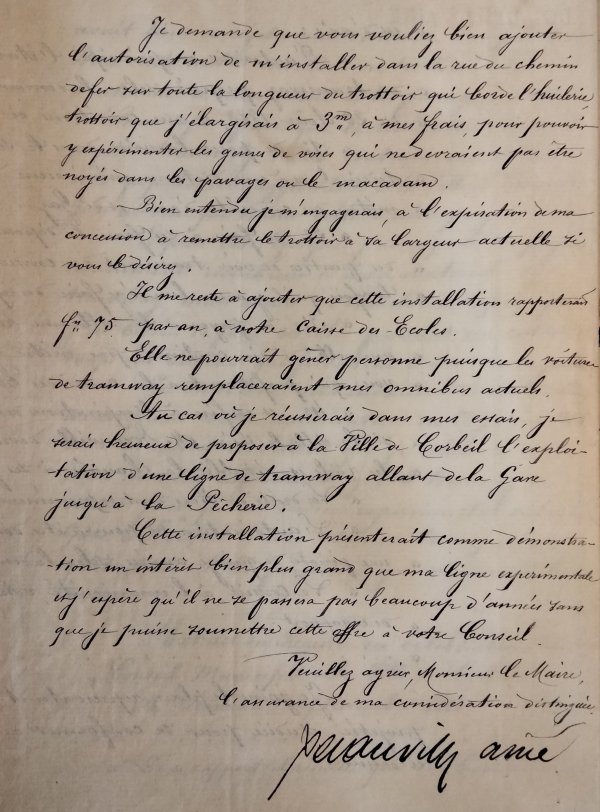 Je demande que vous vouliez bien ajouter
l'autorisation de m'installer dans la rue du chemin
de fer sur toute la longueur du trottoir qui borde l'huilerie,
trottoir que j'élargirais à 3m, à mes frais, pour pouvoir
y expérimenter les genres de voies qui ne devraient pas être
noyés dans les pavages ou le macadam.
Bien entendu je m'engagerais, à l'expiration de ma
concession à remettre le trottoir à sa largeur actuelle si
vous le désirez.
Il me reste à ajouter que cette installation rapporterait
fr. 75 par an, à votre Caisse des Ecoles.
Elle ne pourrait gêner personne puisque les voitures
de tramway remplaceraient mes omnibus actuels.
Au cas où je réussirais dans mes essais, je
serais heureux de proposer à la Ville de Corbeil l'exploi-
tation d'une ligne de tramway allant de la Gare
jusqu'à la Pêcherie.
Cette installation présenterait comme démonstra-
tion un intérêt bien plus grand que ma ligne expérimentale
et j'espère qu'il ne se passera pas beaucoup d'années sans
que je puisse soumettre cette offre à votre Conseil.
Veuillez agréer, Monsieur le Maire,
l'assurance de ma considération distinguée.
Decauville aîné